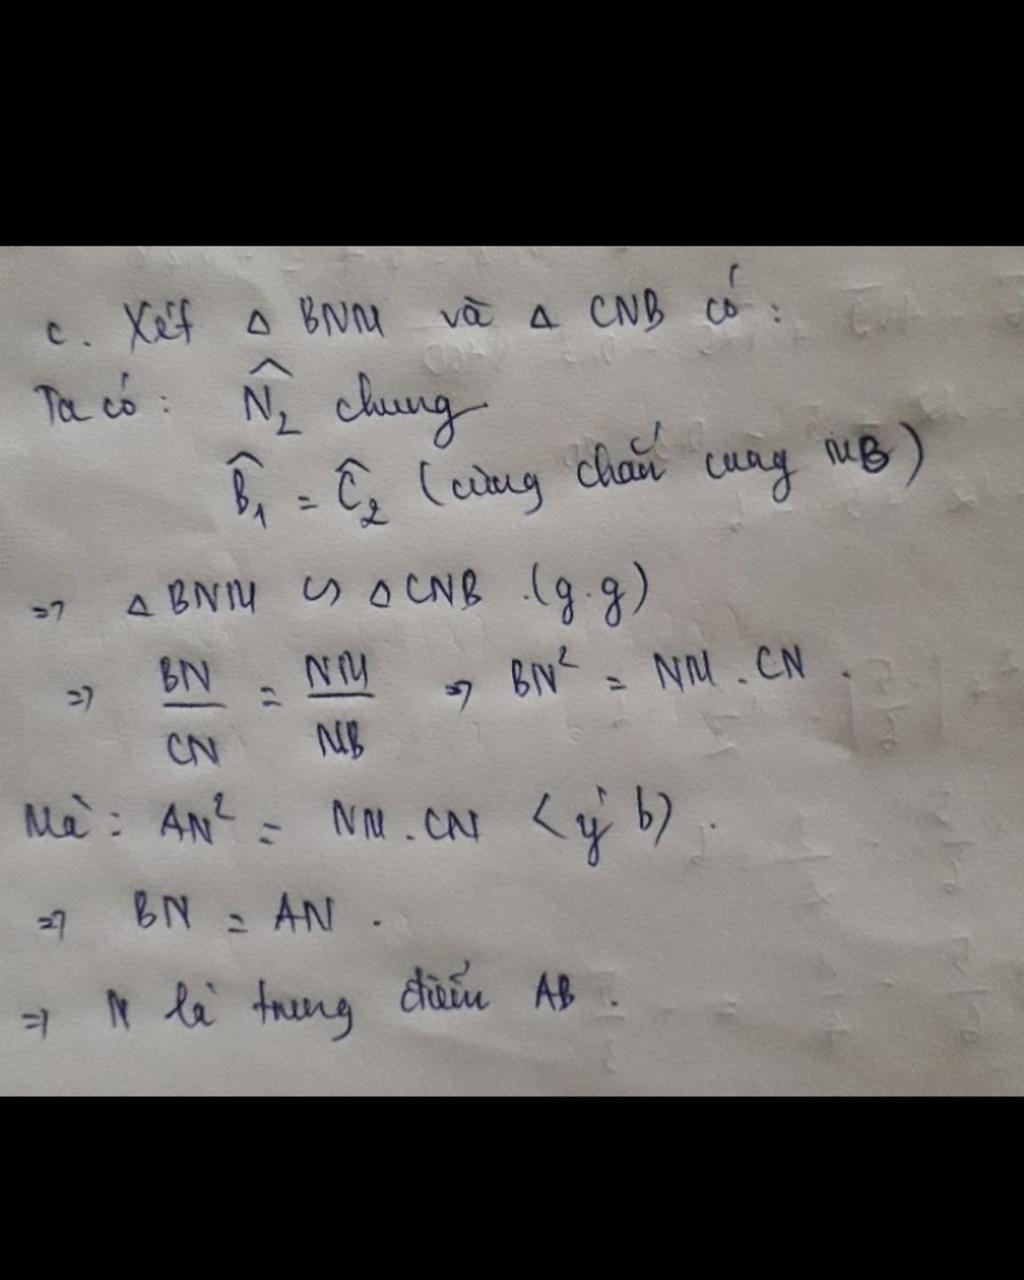 c. Xét Δ BNM và Δ CNB có :
Ta có : N̂₂ chung
B̂₁ = Ĉ₂ (cùng chắn cung MB)
=> Δ BNM ∽ Δ CNB (g.g)
=> BN/CN = NM/NB => BN² = NM . CN .
Mà : AN² = NM . CN (ý b) .
=> BN = AN .
=> N là trung điểm AB .